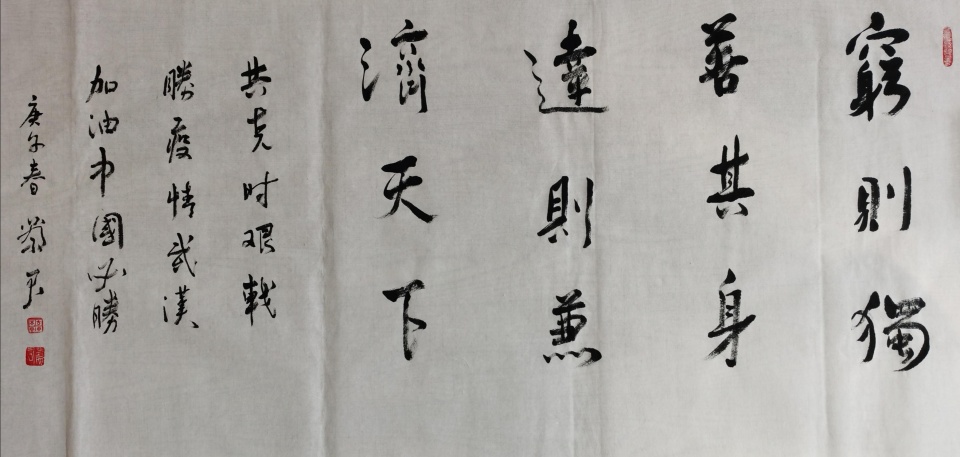 窮則獨
善其身
達則兼
濟天下
共克时艰戰
勝疫情武漢
加油中國必勝
庚午春